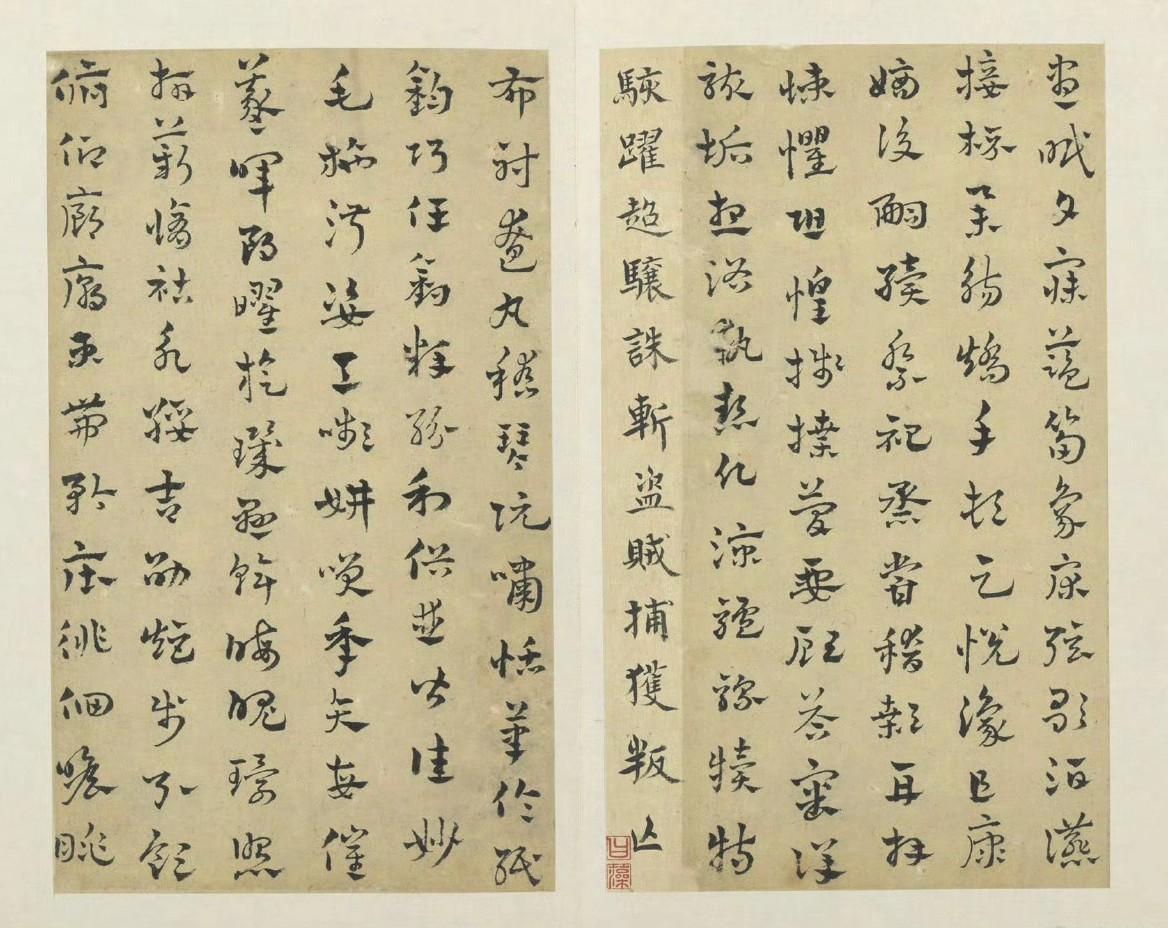 晝眠夕寐藍筍象床弦歌酒讌
接杯舉觴矯手頓足悅豫且康
嫡後嗣續祭祀蒸嘗稽顙再拜
悚懼恐惶牋牒簡要顧答審詳
骸垢想浴執熱願涼驢騾犢特
駭躍超驤誅斬盜賊捕獲叛亡
布射遼丸嵇琴阮嘯恬筆倫紙
鈞巧任釣釋紛利俗並皆佳妙
毛施淑姿工顰妍笑年矢每催
曦暉朗曜旋璣懸斡晦魄環照
指薪修祜永綏吉劭矩步引領
俯仰廊廟束帶矜莊徘徊瞻眺